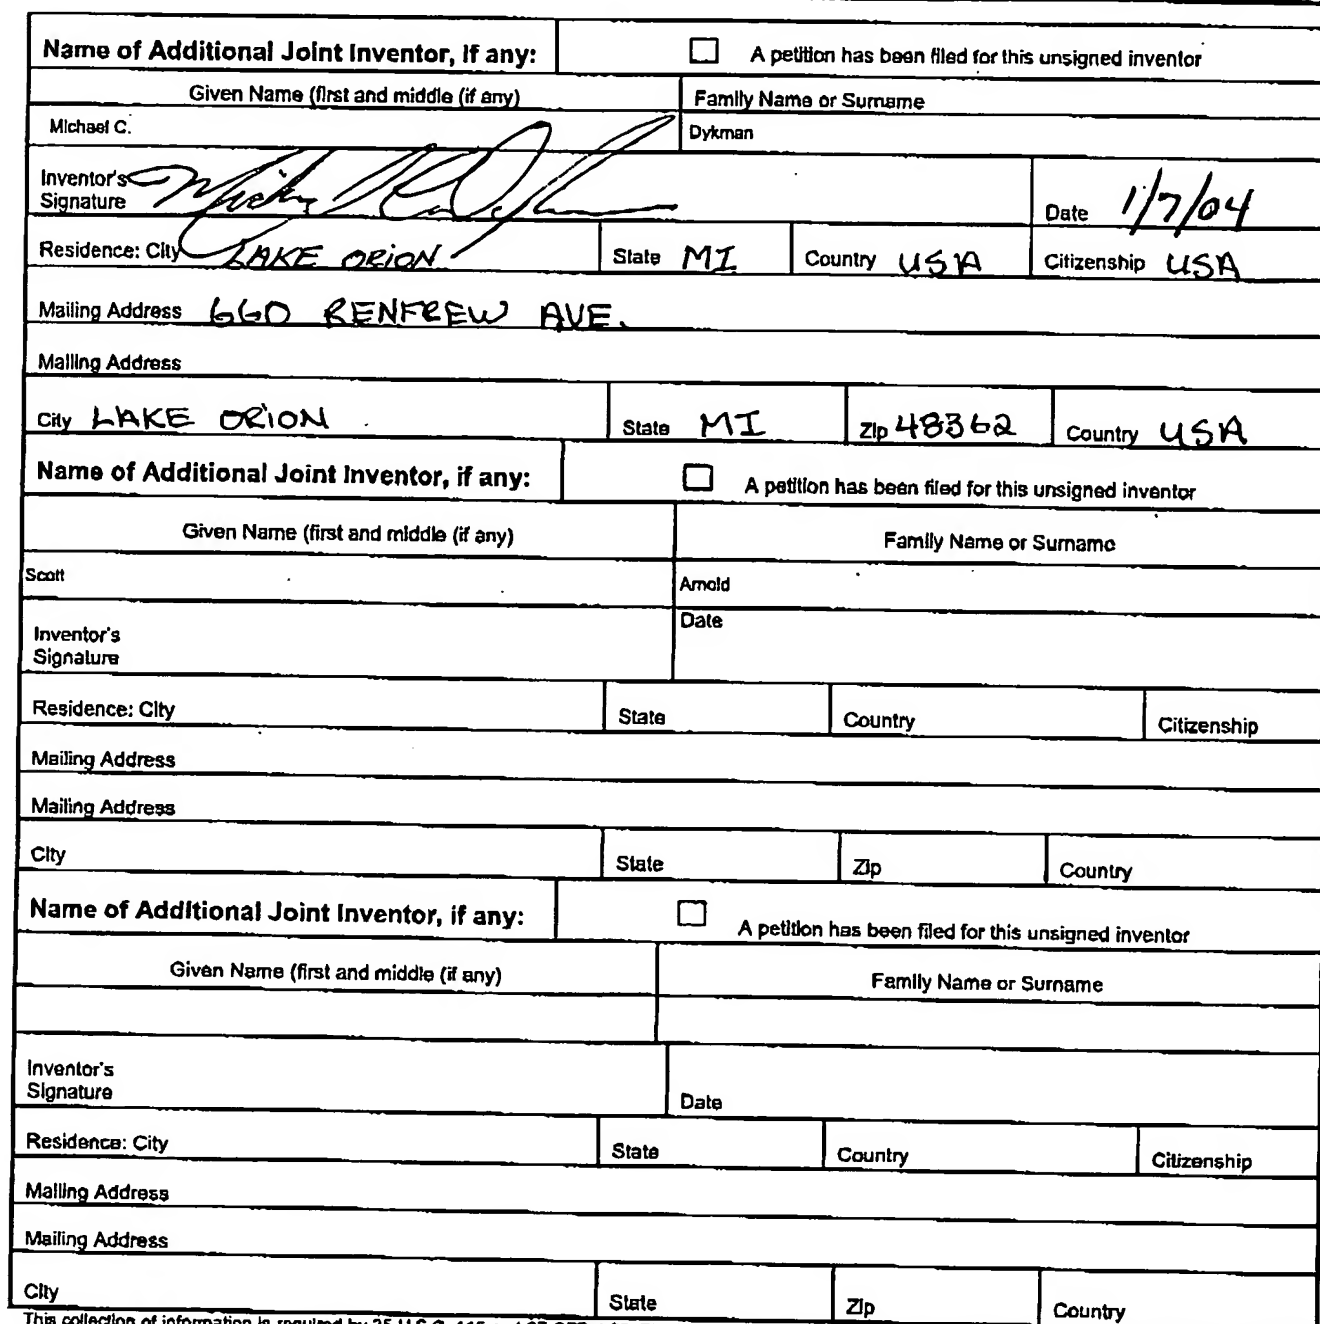 Name of Additional Joint Inventor, if any:
A petition has been filed for this unsigned inventor
Given Name (first and middle (if any)
Family Name or Surname
Michael C.
Dykman
Inventor's
Signature
Date 1/7/04
Residence: City LAKE ORION
State MI
Country USA
Citizenship USA
Mailing Address 660 RENFREW AVE.
Mailing Address
City LAKE ORION
State MI
Zip 48362
Country USA
Name of Additional Joint Inventor, if any:
A petition has been filed for this unsigned inventor
Given Name (first and middle (if any)
Family Name or Surname
Scott
Arnold
Inventor's
Signature
Date
Residence: City
State
Country
Citizenship
Mailing Address
Mailing Address
City
State
Zip
Country
Name of Additional Joint Inventor, if any:
A petition has been filed for this unsigned inventor
Given Name (first and middle (if any)
Family Name or Surname
Inventor's
Signature
Date
Residence: City
State
Country
Citizenship
Mailing Address
Mailing Address
City
State
Zip
Country
This collection of information is required by 35 U.S.C.